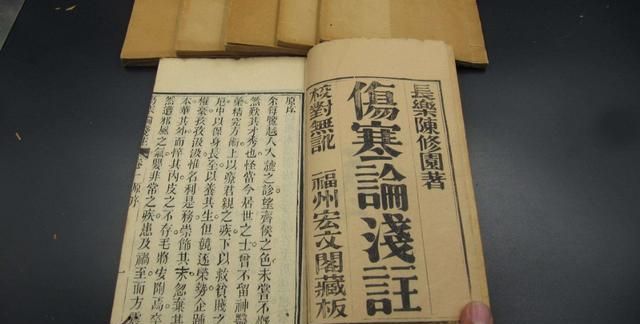 長樂陳修園著
傷寒論淺註
校對無訛 福州宏文閣藏板
原序
余每覽越人入虢之診望齊侯之色未嘗不
然歎其才秀也怪當今居世之士曾不留神醫
藥精究方術上以療君親之疾下以救貧賤
厄中以保身長全以養其生但競逐榮勢企踵
權豪孜孜汲汲惟名利是務崇飾其末忽棄其
本華其外而悴其內皮之不存毛將安附焉
然遭邪風之氣嬰非常之疾患及禍至而方
卷一原序